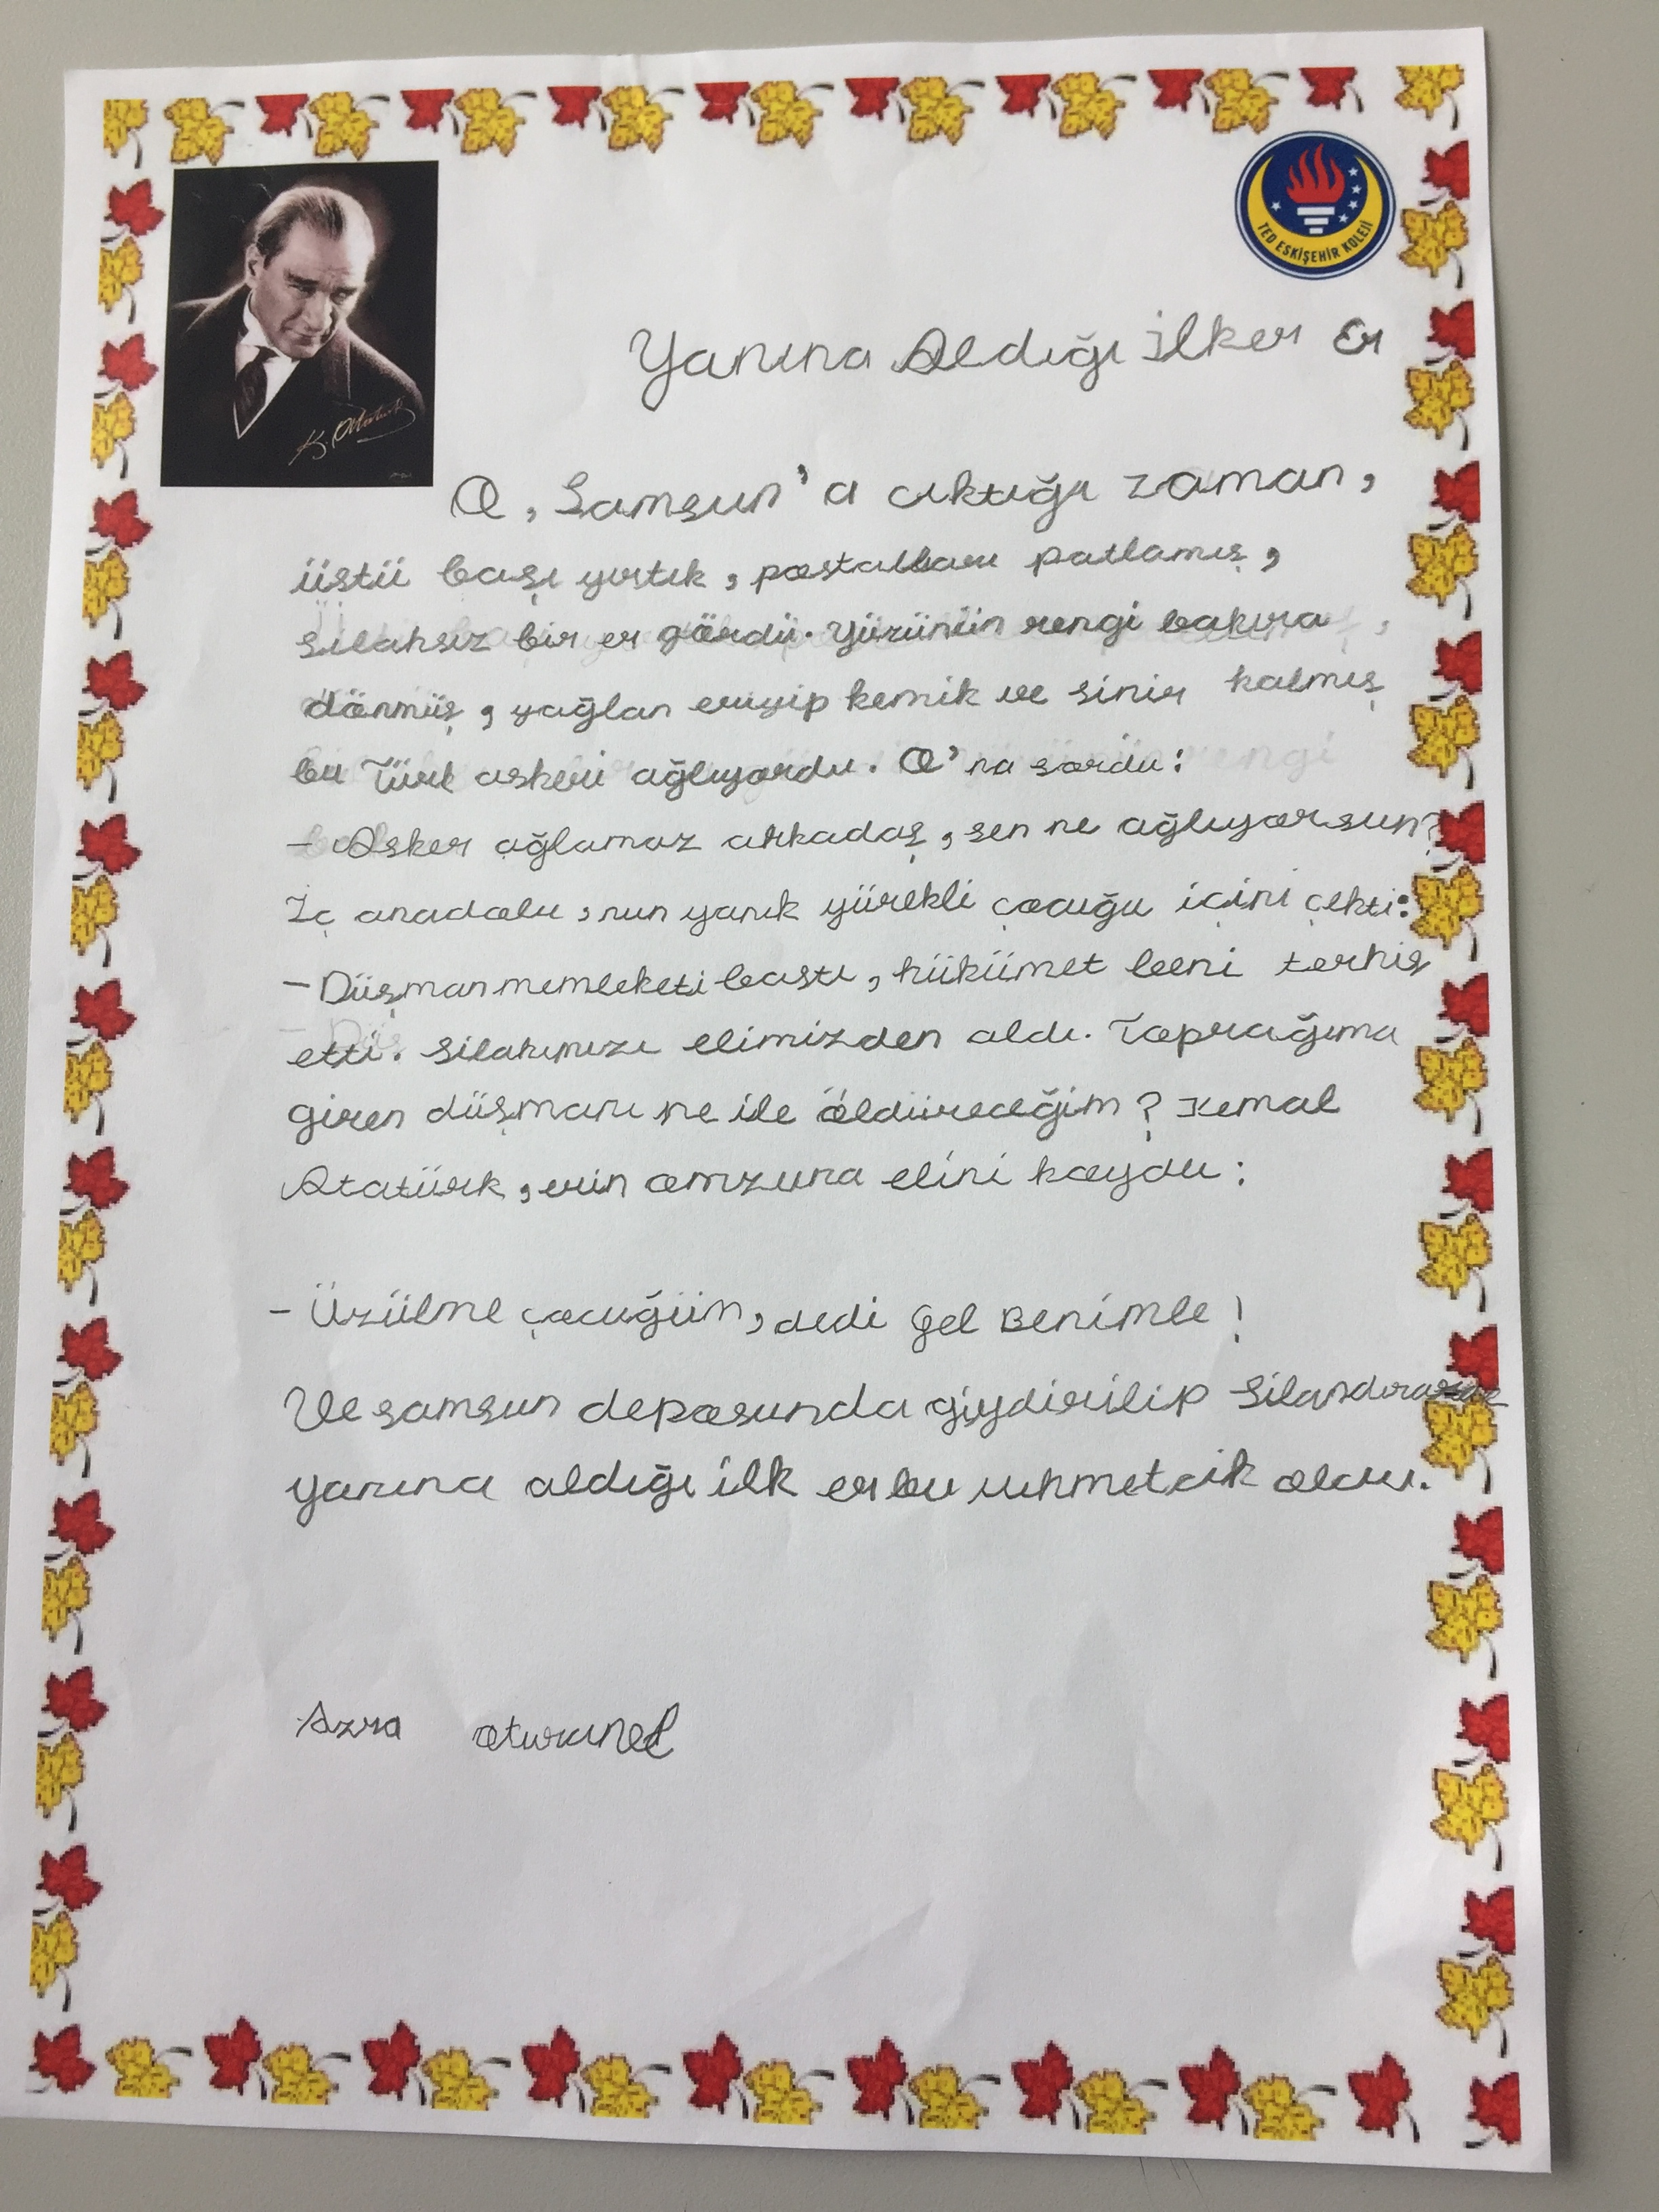 K. Atatürk
TED ESKİŞEHİR KOLEJİ
Yanına Aldığı İlker Er
O, Samsun'a cıktığı zaman,
üstü başı yırtık, postalları patlamış,
silahsız bir er gördü. Yüzünün rengi bakıra
dönmüş, yağları eriyip kemik ve sinir kalmış
bu Türk askeri ağlıyordu. O'na sordu:
- Asker ağlamaz arkadaş, sen ne ağlıyorsun?
İç anadolu,nun yanık yürekli çocuğu içini çekti:
- Düşman memleketi bastı, hükümet beni terhis
etti. silahımızı elimizden aldı. Toprağıma
giren düşmanı ne ile öldüreceğim? Kemal
Atatürk, erin omzuna elini koydu:
- Üzülme çocuğüm, dedi gel Benimle!
Ve samsun deposunda giydirilip
yanına aldığı ilk er bu mehmetcik oldu.
Azra